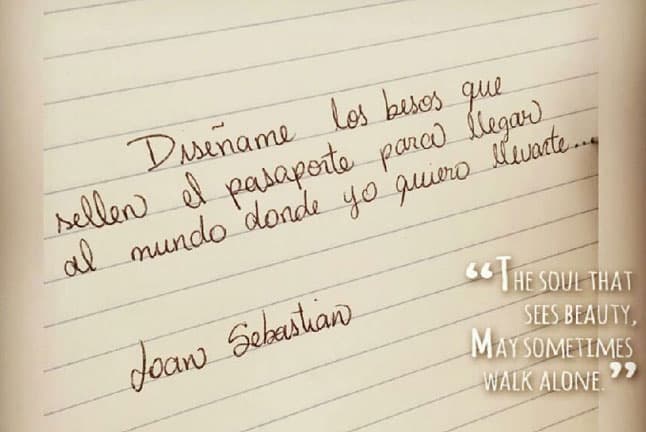 Diseñame los besos que
sellen el pasaporte para llegar
al mundo donde yo quiero llevarte...
Joan Sebastian
“THE SOUL THAT
SEES BEAUTY,
MAY SOMETIMES
WALK ALONE.”